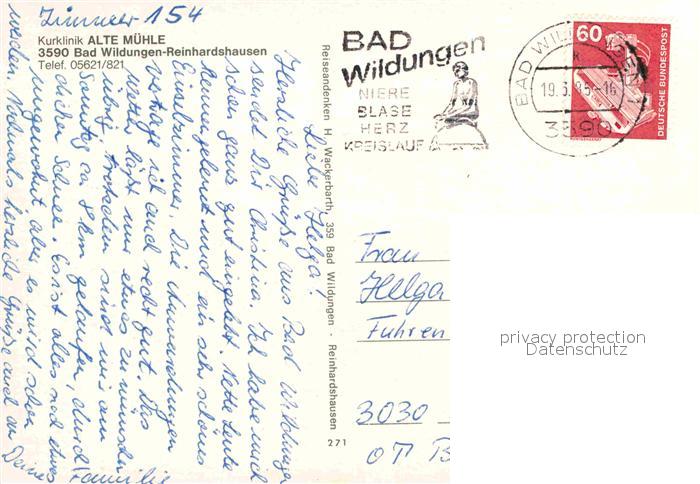 Zimmer 154
Kurklinik ALTE MÜHLE
3590 Bad Wildungen-Reinhardshausen
Telef. 05621/821
Liebe Helga!
Herzliche Grüße aus Bad Wildungen
sendet Dir Christina. Ich habe mich
schon ganz gut eingelebt. Nette Leute
kennengelernt und ein sehr schönes
Einzelzimmer. Die Anwendungen
vertrage ich auch recht gut. Das
Wetter läßt nur etwas zu wünschen
übrig, trotzdem sind wir am
Sonntag ca 8 km gelaufen, durch
dicken Schnee. Es ist alles noch etwas
ungewohnt aber es wird schon
werden. Nochmals herzliche Grüße auch an Deine
Familie
Reiseandenken H. Wackerbarth, 359 Bad Wildungen - Reinhardshausen
271
BAD
Wildungen
NIERE
BLASE
HERZ
KREISLAUF
BAD WILDUNGEN 1
19.3.85-16
3590
60
DEUTSCHE BUNDESPOST
Frau
Helga
Fuhren
3030
OT B
privacy protection
Datenschutz